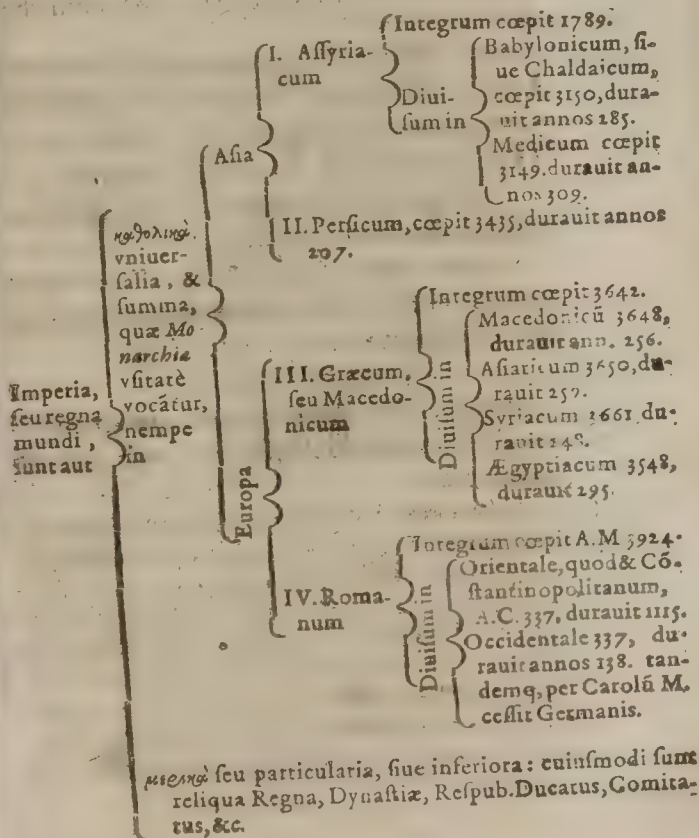 Imperia,
ſeu regna
mundi,
ſunt aut
καθολικὰ.
vniuer-
ſalia, &
ſumma,
quæ Mo
narchiæ
vſitatè
vocãtur,
nempe
in
Aſia
I. Aſſyria-
cum
Integrum cœpit 1789.
Diui-
ſum in
Babylonicum, ſi-
ue Chaldaicum,
cœpit 3150, dura-
uit annos 285.
Medicum cœpit
3149. durauit an-
nos 309.
II. Perſicum, cœpit 3435, durauit annos
207.
Europa
III. Græcum,
ſeu Macedo-
nicum
Integrum cœpit 3642.
Diuiſum in
Macedonicũ 3648,
durauit ann. 256.
Aſiaticum 3650, du-
rauit
Syriacum 3661 du-
rauit
Ægyptiacum 3548,
durauit 295.
IV. Roma-
num
Integrum cœpit A.M 3924.
Diuiſum in
Orientale, quod & Cõ-
ſtantinopolitanum,
A.C. 337, durauit 1115.
Occidentale 337, du-
rauit annos 138. tan-
demq, per Carolũ M.
ceſſit Germanis.
μερικὰ ſeu particularia, ſiue inferiora: cuiuſmodi ſunt
reliqua Regna, Dynaſtiæ, Reſpub. Ducatus, Comita-
tus, &c.